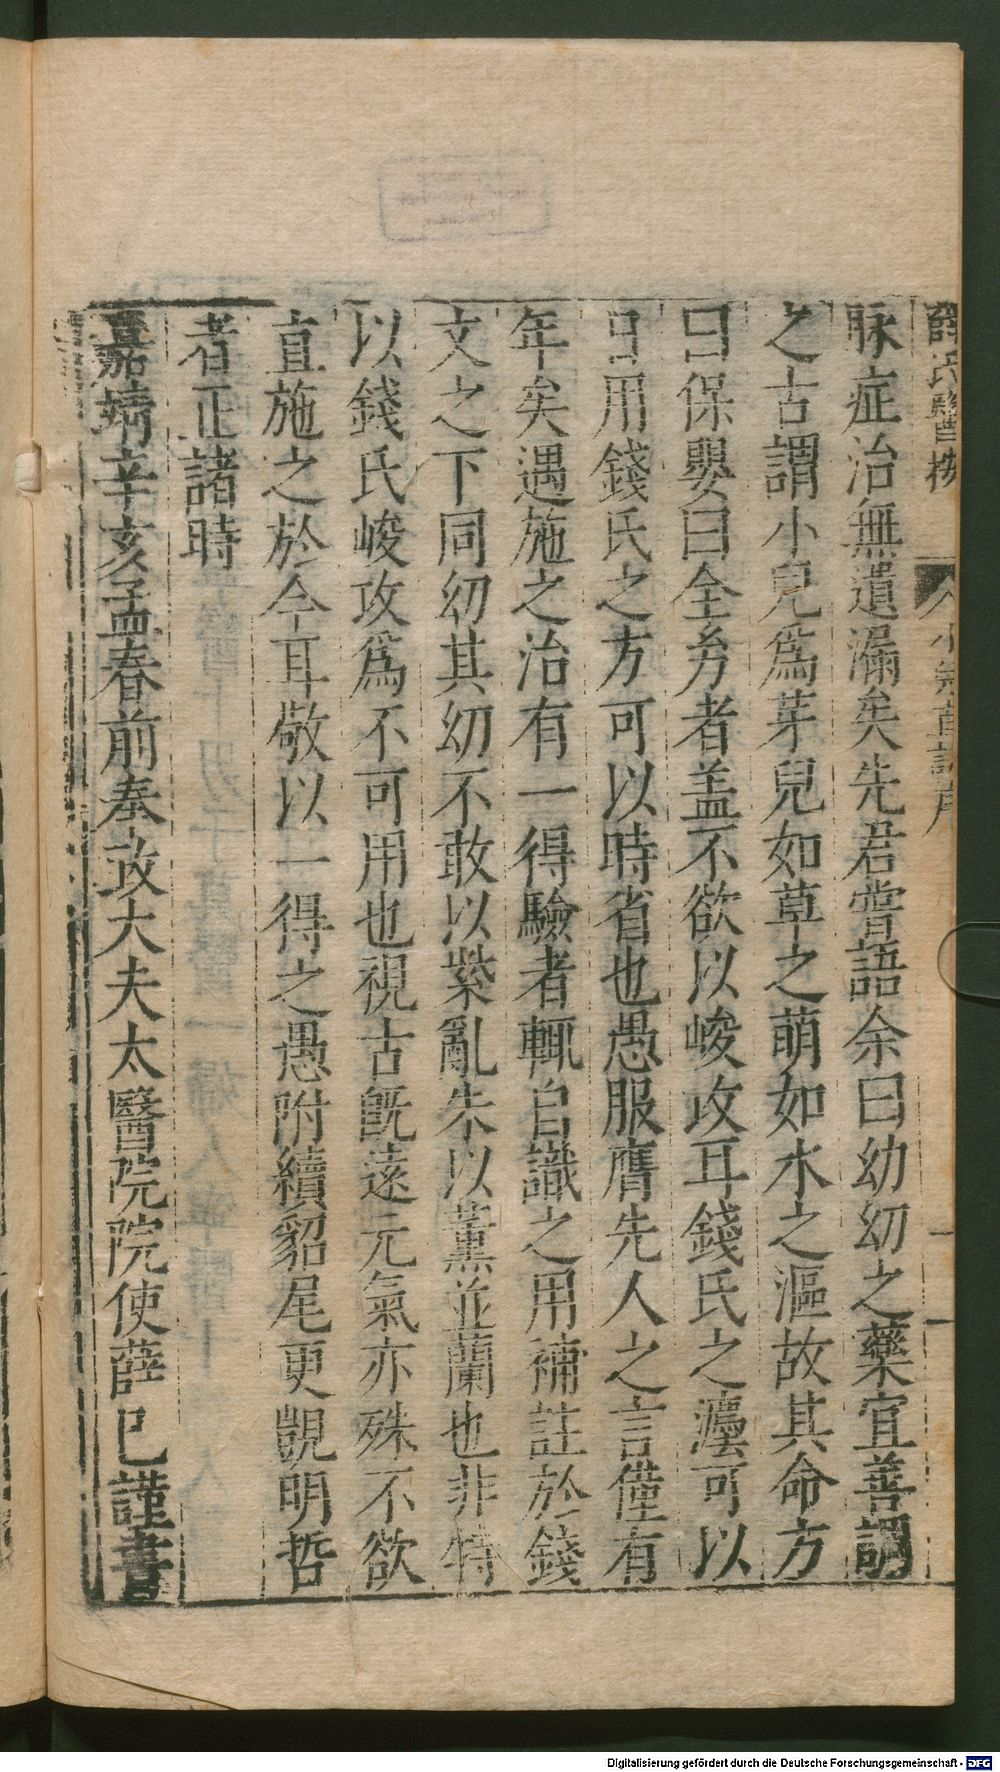 薛氏醫按 小兒直訣序 一
脉症治無遺漏矣先君嘗語余曰幼幼之藥宜善調
之古謂小兒爲芽兒如草之萌如水之漚故其命方
曰保嬰曰全幼者盖不欲以峻攻耳錢氏之灋可以
日用錢氏之方可以時省也愚服膺先人之言僅有
年矣遇施之治有一得驗者輒自識之用補註於錢
文之下同幼其幼不敢以紫亂朱以薰並蘭也非特
以錢氏峻攻爲不可用也視古旣遠元氣亦殊不欲
直施之於今耳敬以一得之愚附續貂尾更覬明哲
者正諸時
嘉靖辛亥孟春前奉政大夫太醫院院使薛已謹書
Digitalisierung gefördert durch die Deutsche Forschungsgemeinschaft - DFG